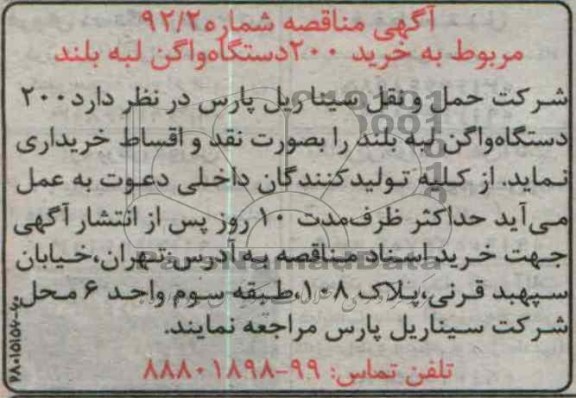 آگهی مناقصه شماره ۹۲/۲
مربوط به خرید ۲۰۰دستگاه‌واگن لبه بلند
شرکت حمل و نقل سینا ریل پارس در نظر دارد ۲۰۰
دستگاه‌واگن لبه بلند را بصورت نقد و اقساط خریداری
نماید. از کلیه تولیدکنندگان داخلی دعوت به عمل
می‌آید حداکثر ظرف‌مدت ۱۰ روز پس از انتشار آگهی
جهت خرید اسناد مناقصه به آدرس:تهران،خیابان
سپهبد قرنی،پلاک ۱۰۸،طبقه سوم واحد ۶ محل
شرکت سیناریل پارس مراجعه نمایند.
تلفن تماس: ۹۹-۸۸۸۰۱۸۹۸
ParsNamadData